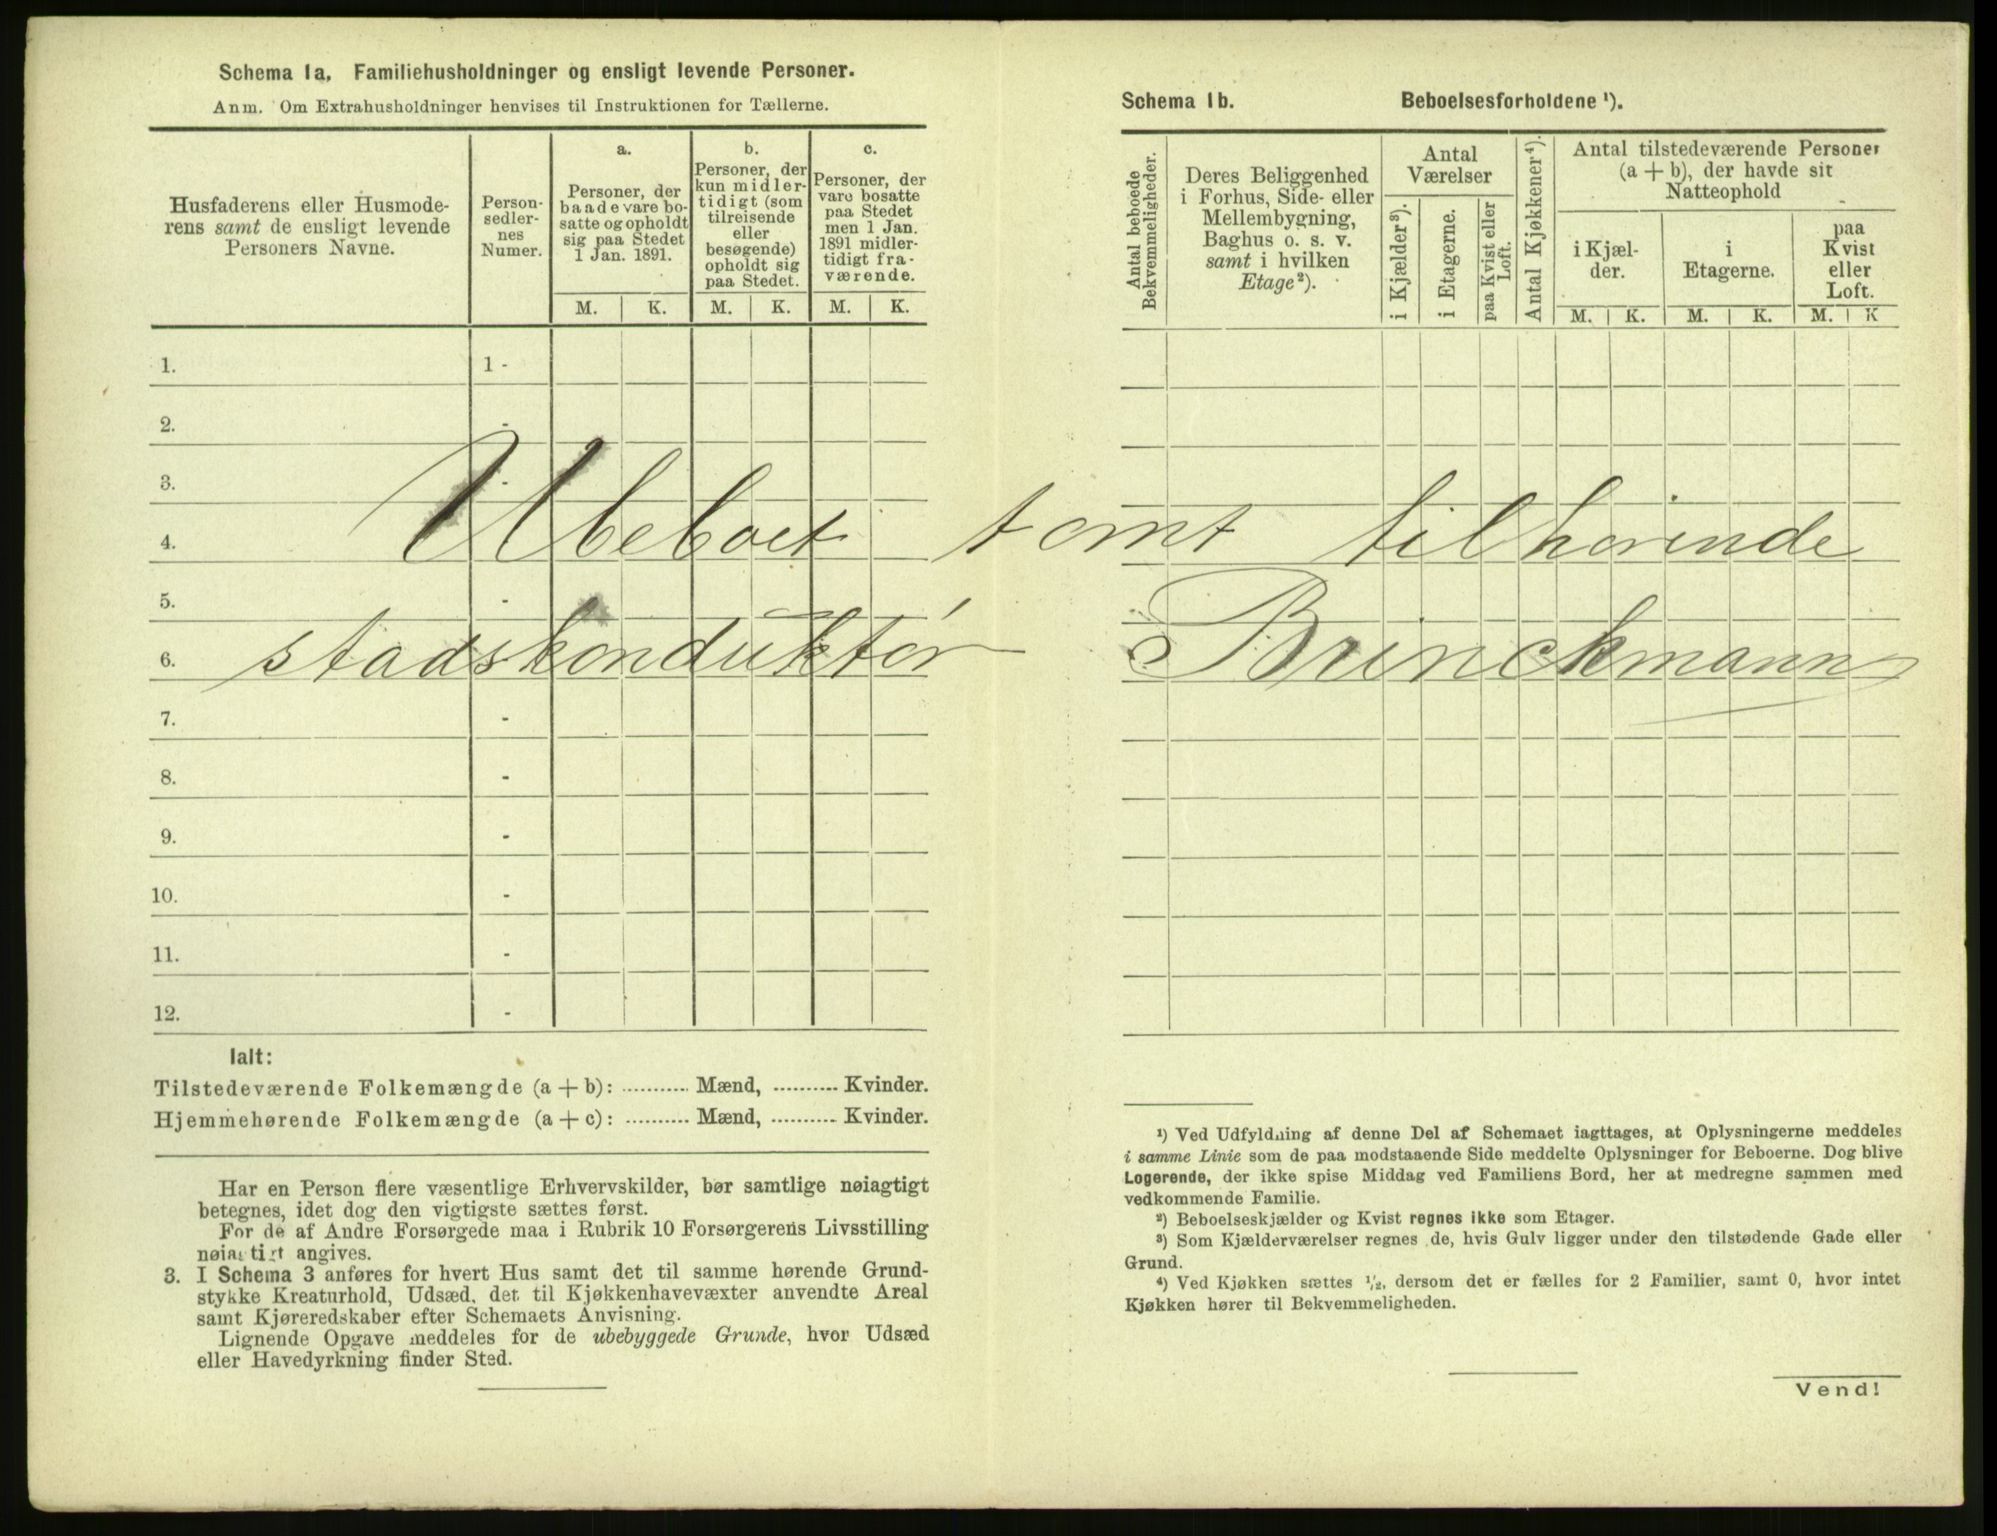 Schema 1a. Familiehusholdninger og ensligt levende Personer.
Anm. Om Extrahusholdninger henvises til Instruktionen for Tællerne.
Husfaderens eller Husmode-
rens samt de ensligt levende
Personers Navne.
Person-
sedler-
nes
Numer.
a.
Personer, der
baade vare bo-
satte og opholdt
sig paa Stedet
1 Jan. 1891.
b.
Personer, der
kun midler-
tidigt (som
tilreisende
eller
besøgende)
opholdt sig
paa Stedet.
c.
Personer, der
vare bosatte
paa Stedet
men 1 Jan.
1891 midler-
tidigt fra-
værende.
M. K. M. K. M. K.
1. 1 -
2. -
3. -
4. Ubeboet
5. -
6. stadskonduktør
7. -
8. -
9. -
10. -
11. -
12. -
Ialt:
Tilstedeværende Folkemængde (a + b): .......... Mænd, .......... Kvinder.
Hjemmehørende Folkemængde (a + c): .......... Mænd, .......... Kvinder.
Har en Person flere væsentlige Erhvervskilder, bør samtlige nøiagtigt
betegnes, idet dog den vigtigste sættes først.
For de af Andre Forsørgede maa i Rubrik 10 Forsørgerens Livsstilling
nøiagtigt angives.
3. I Schema 3 anføres for hvert Hus samt det til samme hørende Grund-
stykke Kreaturhold, Udsæd, det til Kjøkkenhavevæxter anvendte Areal
samt Kjøreredskaber efter Schemaets Anvisning.
Lignende Opgave meddeles for de ubebyggede Grunde, hvor Udsæd
eller Havedyrkning finder Sted.
Schema 1b. Beboelsesforholdene ¹).
Antal beboede
Bekvemmeligheder.
Deres Beliggenhed
i Forhus, Side- eller
Mellembygning,
Baghus o. s. v.
samt i hvilken
Etage²).
Antal
Værelser
i Kjælder³).
i Etagerne.
paa Kvist eller
Loft.
Antal Kjøkkener⁴).
Antal tilstedeværende Personer
(a + b), der havde sit
Natteophold
i Kjæl-
der.
i
Etagerne.
paa
Kvist
eller
Loft.
M. K. M. K. M. K
tomt tilhørende
Brinckmann
¹) Ved Udfyldning af denne Del af Schemaet iagttages, at Oplysningerne meddeles
i samme Linie som de paa modstaaende Side meddelte Oplysninger for Beboerne. Dog blive
Logerende, der ikke spise Middag ved Familiens Bord, her at medregne sammen med
vedkommende Familie.
²) Beboelseskjælder og Kvist regnes ikke som Etager.
³) Som Kjælderværelser regnes de, hvis Gulv ligger under den tilstødende Gade eller
Grund.
⁴) Ved Kjøkken sættes ¹/₂, dersom det er fælles for 2 Familier, samt 0, hvor intet
Kjøkken hører til Bekvemmeligheden.
Vend!